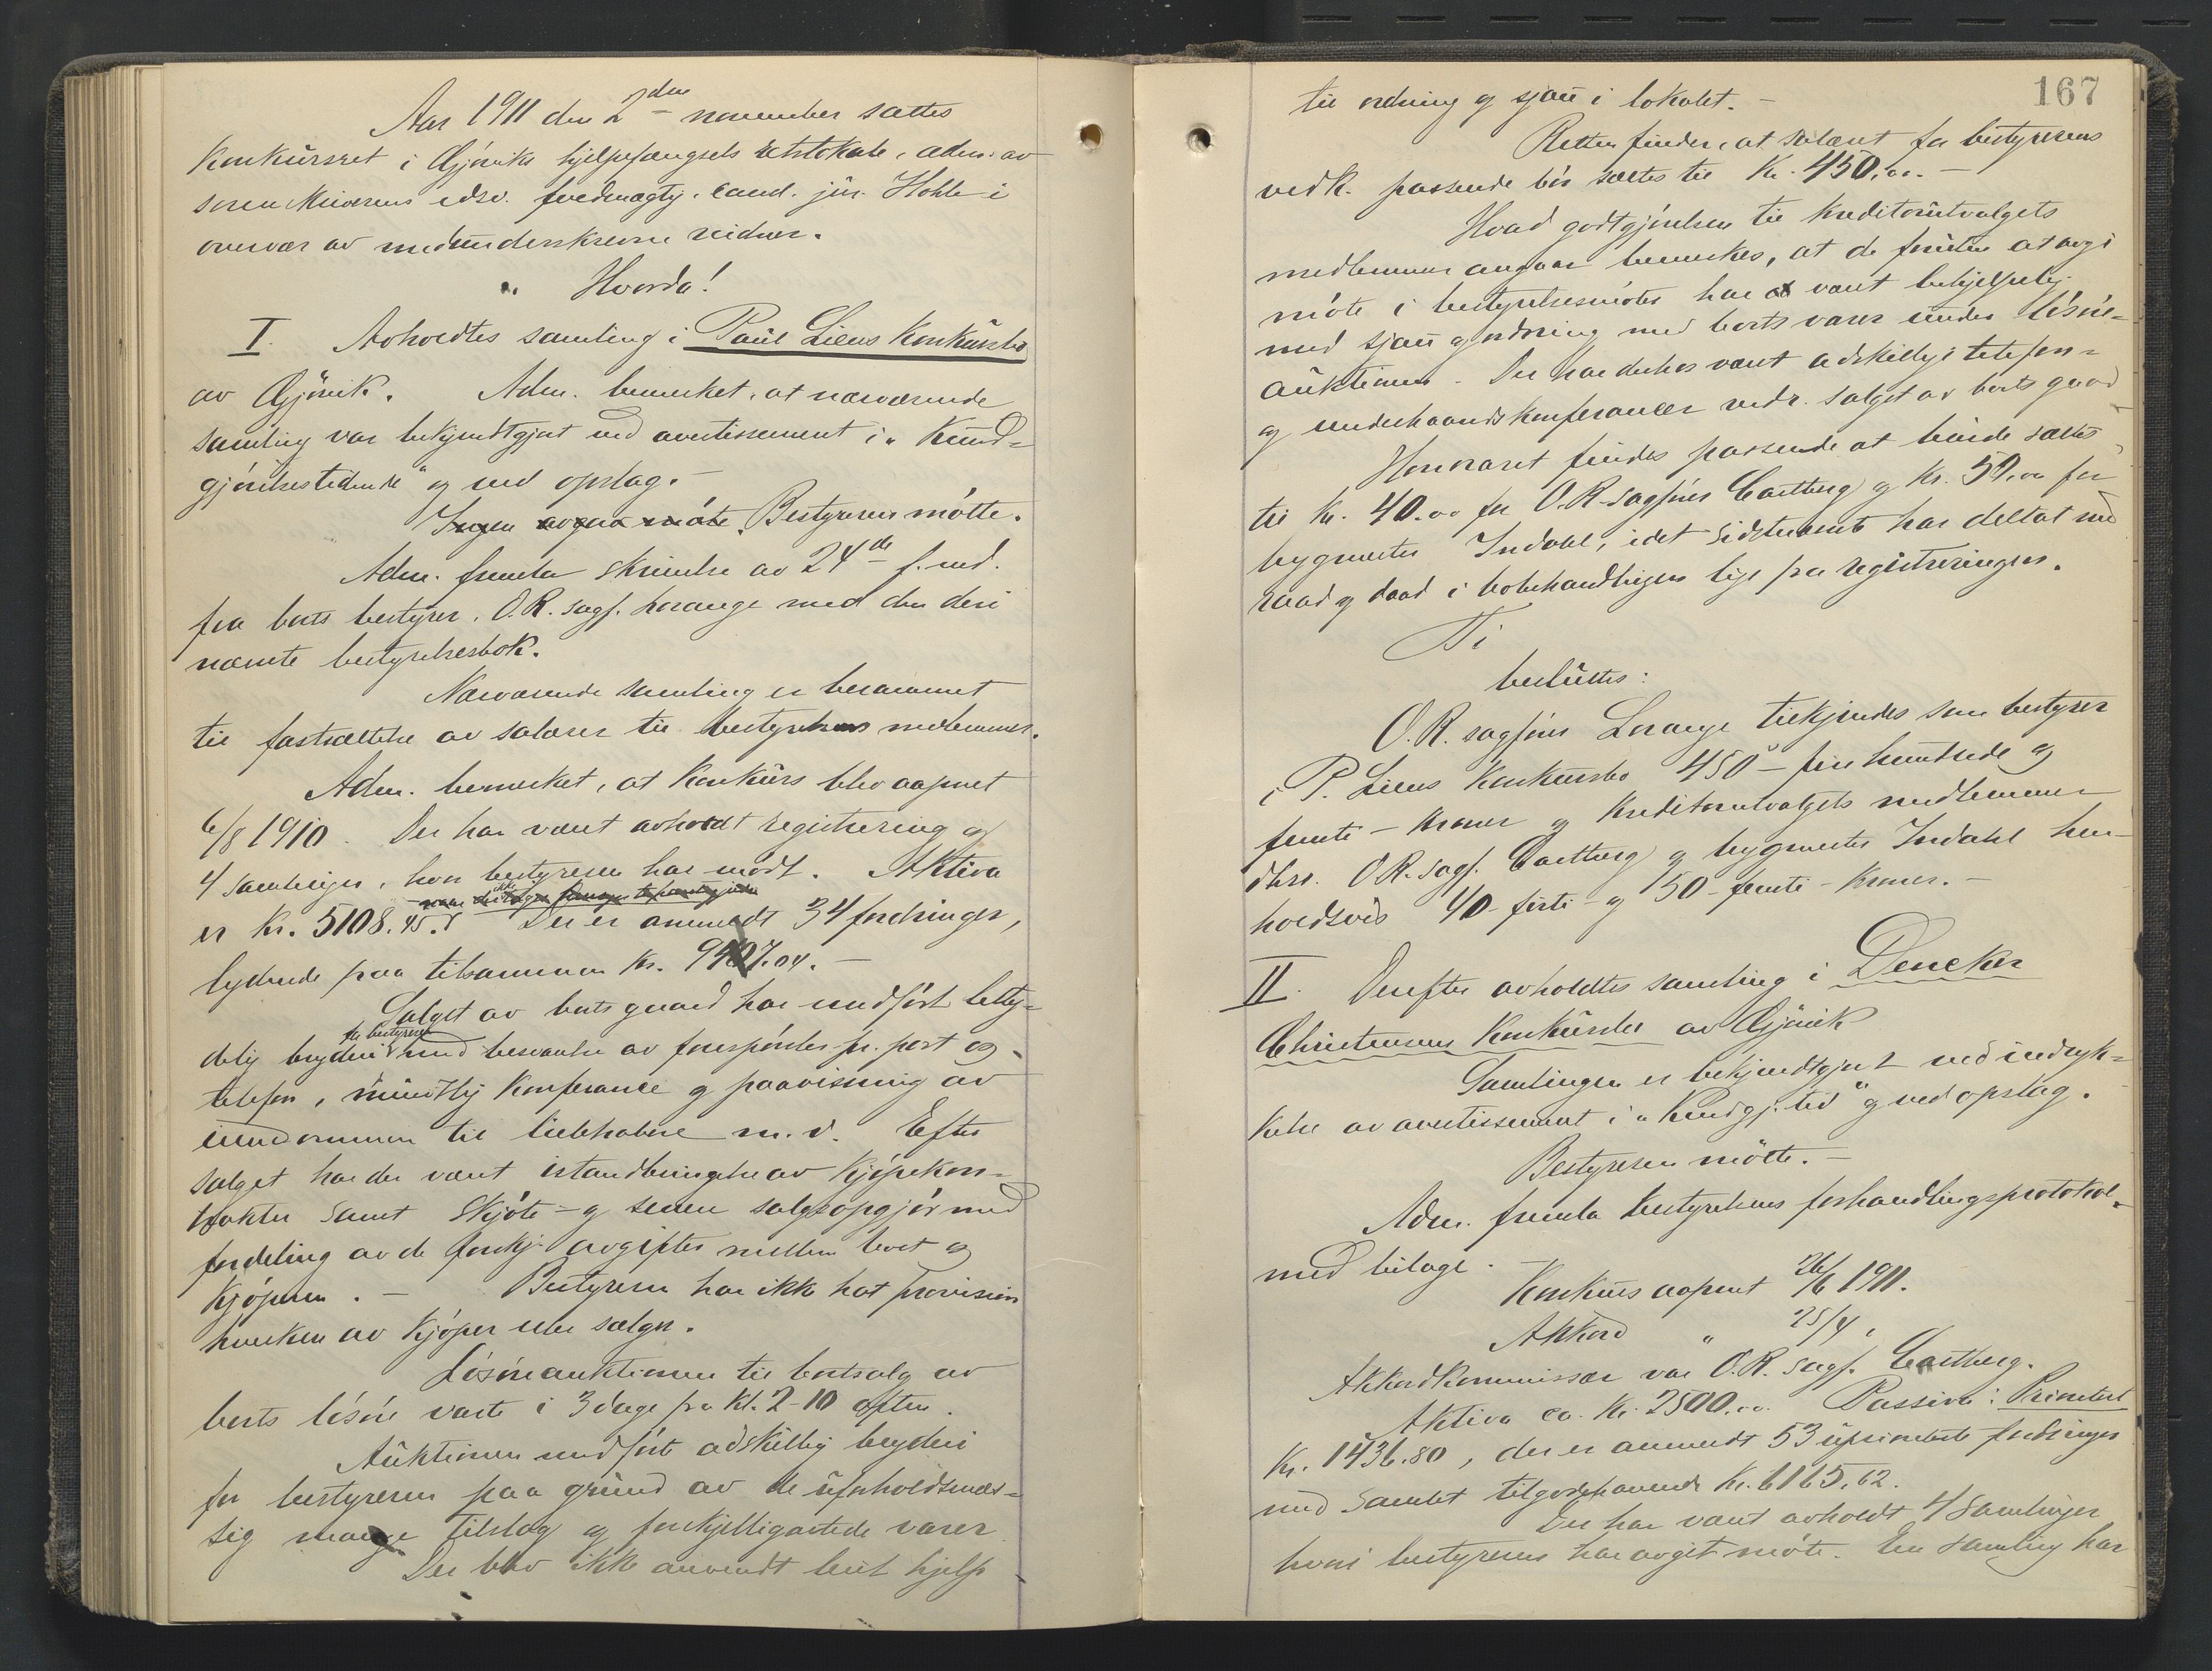 Aar 1911 den 2den november sattes
konkursret i Gjøviks hjelpefængsels retslokale, adm. av
sorenskriverens edsv. fuldmægtig, cand. jur. Hohle i
overvær av medunderskrevne vidner.
Hvorda!
I. Avholdtes samling i Paul Liens Konkursbo
av Gjøvik. Adm. bemerket, at nærværende
samling var bekjendtgjort ved avertissement i „Kund-
gjørelsestidende“ og ved opslag.
Ingen avgaa møte. Bestyreren møtte.
Adm. fremla skrivelse av 24de f. md.
fra boets bestyrer, O.R. sagf. Lorange med den deri
nævnte bestyrelsesbok.
Nærværende samling er berammet
til fastsættelse av salærer til bestyrelsens medlemmer.
Adm. bemerket, at konkurs blev aapnet
6/8 1910. Der har været avholdt registrering og
4 samlinger, hvor bestyreren har mødt. Aktiva
er Kr. 5108.45. Der er anmeldt 34 fordringer,
lydende paa tilsammen Kr. 9407.04. —
Salget av boets gaard har medført bety-
for bestyreren
delig bryderi med besvarelse av forespørsler pr. post og
telefon, mundtlig konferance og paavisning av
eiendommen til liebhabere m.v. Efter
salget har der været istandbringelse av kjøpekon-
trakter samt skjøte- og senere salgsopgjør med
fordeling av de forskj. avgifter mellem boet og
kjøperen. — Bestyreren har ikke hat provision
hverken av kjøper eller sælger.
Løsøreauktionen til bortsalg av
boets løsøre varte i 3 dage fra kl. 2-10 aften.
Auktionen medførte adskillig bryderi
for bestyreren paa grund av de uforholdsmæs-
sig mange tilslag og forskjelligartede varer
Der blev ikke anvendt leiet hjelp
167
til ordning og sjau i lokalet. —
Retten finder, at salæret for bestyrerens
vedk. passende bør sættes til Kr. 450.00. —
Hvad godtgjørelsen til kreditorutvalgets
medlemmer angaar bemerkes, at de foruten at avgi
møte i bestyrelsesmøter har været behjelpelig
med sjau og ordning med boets varer under løsøre-
auktionen. Der har derhos været adskillig telefon-
og underhaandskonferancer vedr. salget av boets gaard
Honoraret findes passende at burde sættes
til Kr. 40.00 for O.R. sagfører Castberg og Kr. 50.00 for
bygmester Indahl, idet sidstnævnte har deltat med
raad og daad i bobehandlingen lige fra registreringen.
Ti
besluttes:
O.R. sagfører Lorange tilkjendes som bestyrer
i P. Liens Konkursbo 450 - fire hundrede og
femti - kroner og kreditorutvalgets medlemmer
dhrr. O.R. sagf. Castberg og bygmester Indahl hen-
holdsvis 40 - førti - og 50 - femti - kroner. —
II. Derefter avholdtes samling i Dencker
Christensens Konkursbo av Gjøvik
Samlingen er bekjendtgjort ved indryk-
kelse av avertissement i „Kundgj. tid“ og ved opslag.
Bestyreren møtte. —
Adm. fremla bestyrelsens forhandlingsprotokol
med bilage.
Konkurs aapnet 26/6 1911.
Akkord „ 25/4 „
Akkordkommissær var O.R. sagf. Castberg.
Aktiva ca. Kr. 2500.00. Passiva: Prioritert
Kr. 1436.80, der er anmeldt 53 uprioriterte fordringer
med samlet tilgodehavende Kr. 6165.62.
Der har været avholdt 4 samlinger
hvori bestyreren har avgit møte. En samling har